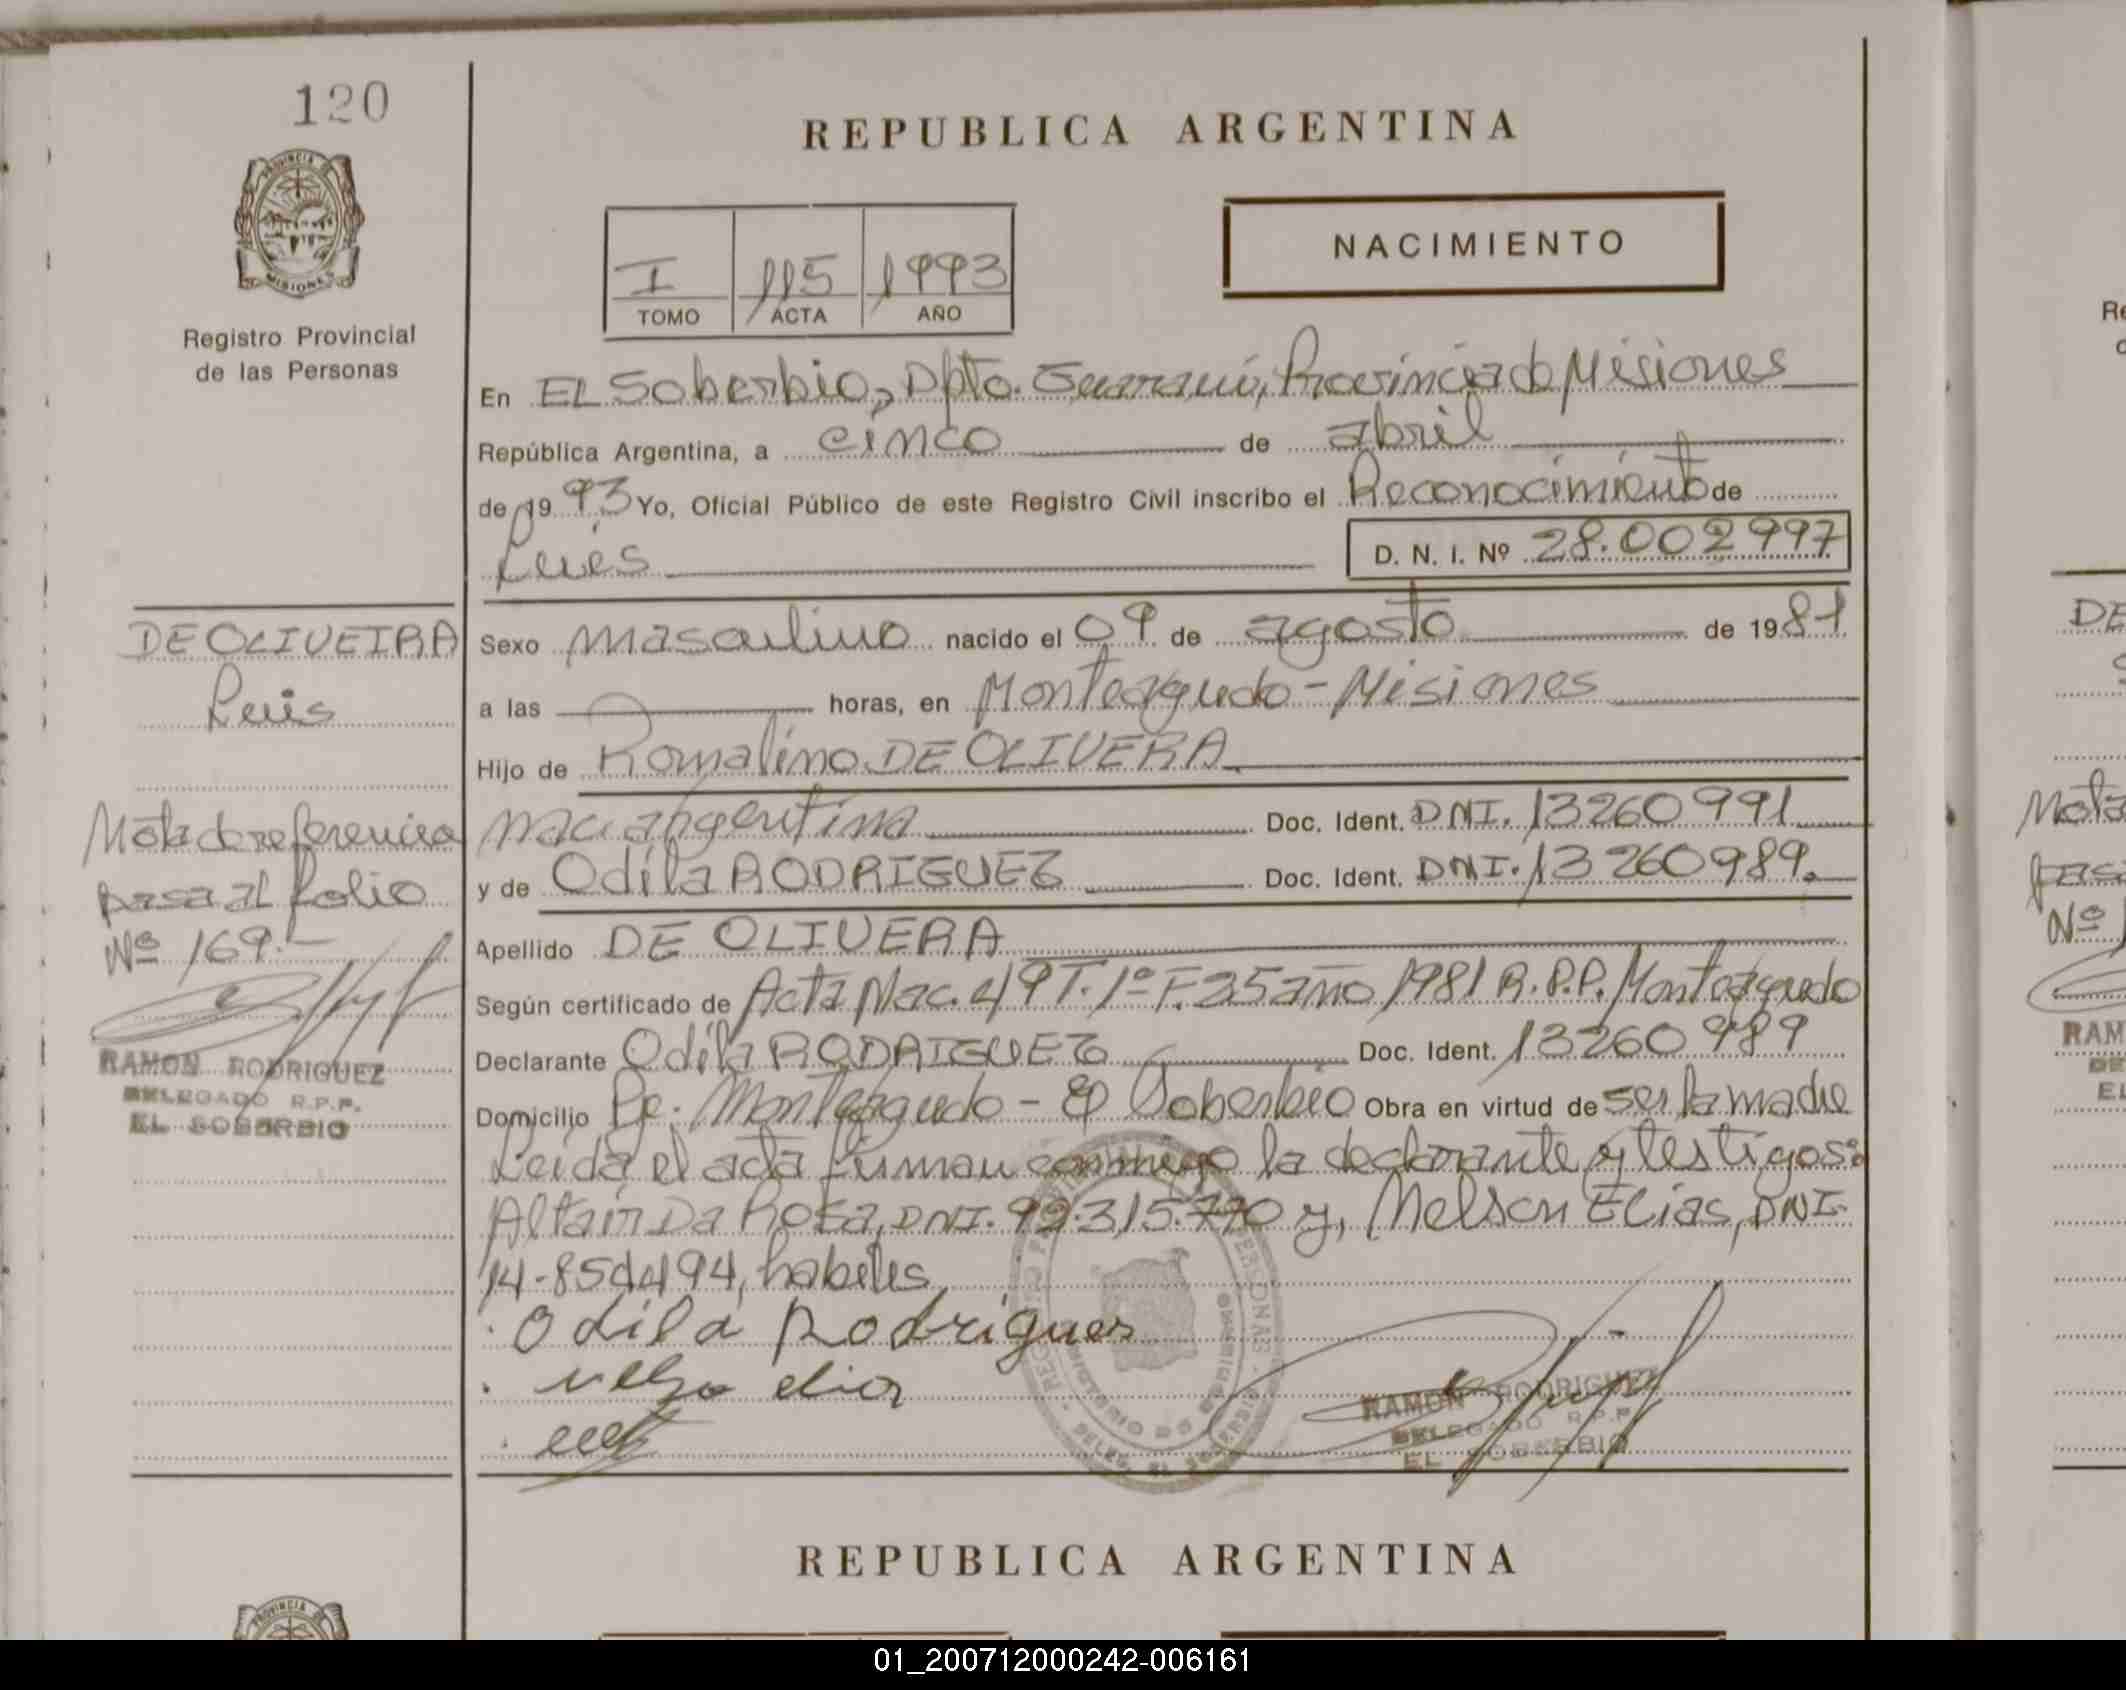 120
PROVINCIA DE
MISIONES
Registro Provincial
de las Personas
REPUBLICA ARGENTINA
NACIMIENTO
I 115 1993
TOMO ACTA AÑO
En EL Soberbio, Dpto. Guaraní, Provincia de Misiones
República Argentina, a cinco de abril
de 1993 Yo, Oficial Público de este Registro Civil inscribo el Reconocimiento de
Luis D. N. I. Nº 28.002997
DE OLIVEIRA
Luis
Sexo masculino nacido el 09 de agosto de 1981
a las horas, en Monteagudo - Misiones
Hijo de Romalino DE OLIVERA
nac. argentina Doc. Ident. DNI. 13260991
y de Odila RODRIGUEZ Doc. Ident. DNI. 13260989.
Nota de referencia
pasa al folio
Nº 169.-
RAMON RODRIGUEZ
DELEGADO R.P.P.
EL SOBERBIO
Apellido DE OLIVERA
Según certificado de Acta Nac. 49 T. 1º F. 25 año 1981 R.P.P. Monteagudo
Declarante Odila RODRIGUEZ Doc. Ident. 13260989
Domicilio Pje. Monteagudo - El Soberbio Obra en virtud de ser la madre
Leida el acta firman conmigo la declarante y testigos:
Altair Da Rosa, DNI. 92.315.770 y, Nelson Elias, DNI.
14.854494, habiles
Odila Rodrigues
RAMON RODRIGUEZ
DELEGADO R.P.P.
EL SOBERBIO
REPUBLICA ARGENTINA
PROVINCIA
01_200712000242-006161